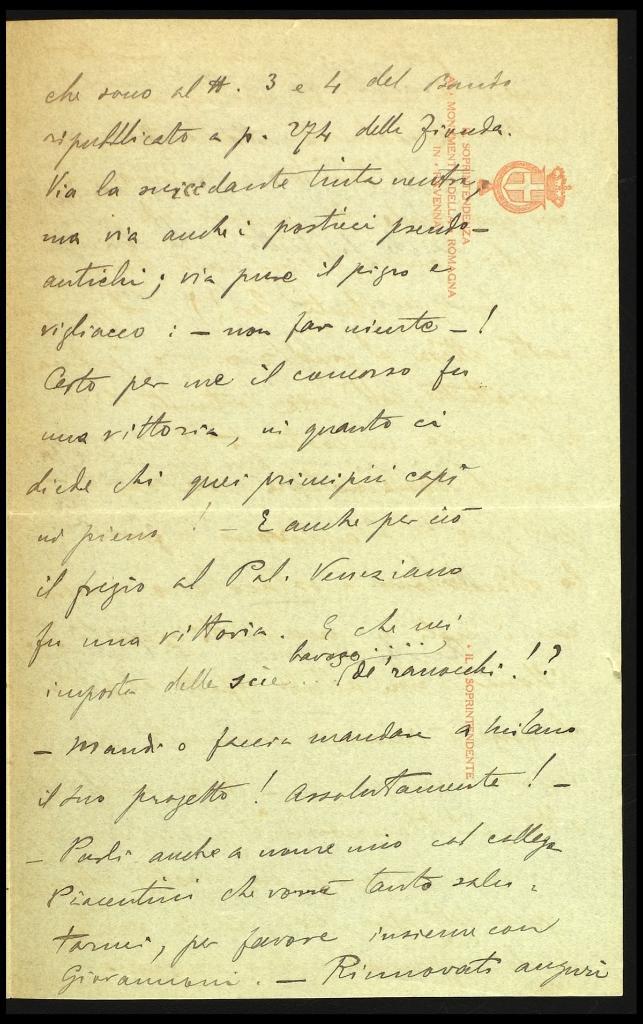 che sono al N. 3 e 4 del Bando
ripubblicato a p. 274 della
Via la tinta neutra,
ma via anche i posticci pseudo-
antichi; via pure il pigro e
vigliacco: - non far niente - !
Certo per me il concorso fu
una vittoria, in quanto ci
diede chi quei principii capì
in pieno! - E anche per ciò
il fregio al Pal. Veneziano
fu una vittoria. E che mi
importa delle scie bavose ..... (de' ranocchi!?
- Mandi o faccia mandare a Milano
il suo progetto! Assolutamente! -
- Parli anche a nome mio col collega
Piacentini che vorrà tanto salu-
tarmi, per favore insieme con
Giovannoni. - Rinnovati auguri
SOPRINTENDENZA
AI MONUMENTI DELLA ROMAGNA
IN RAVENNA
IL SOPRINTENDENTE